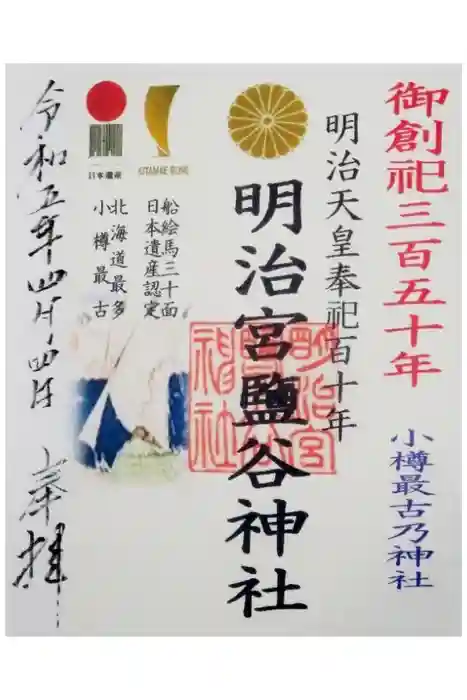 御創祀三百五十年
小樽最古乃神社
明治天皇奉祀百十年
明治宮鹽谷神社
船絵馬三十面
日本遺産認定
北海道最多
小樽最古
KITAMAE BUNE
日本遺産
令和五年四月四日
奉拝